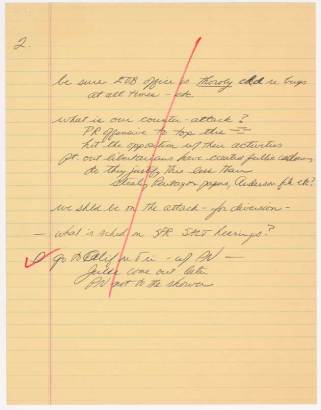 2.
be sure EOB office is thoroly ckd re bugs
at all times - etc.
what is our counter-attack?
PR offensive to top this —
hit the opposition w/ their activities
pt. out libertarians have created public callousness
do they justify this less than
stealing Pentagon papers, Anderson file etc?
we shld be on the attack - for diversion -
— what is sched on SFR SALT hearings?
go to Calif on Fri - w/ PN —
Julie come out later
PN not to the shower